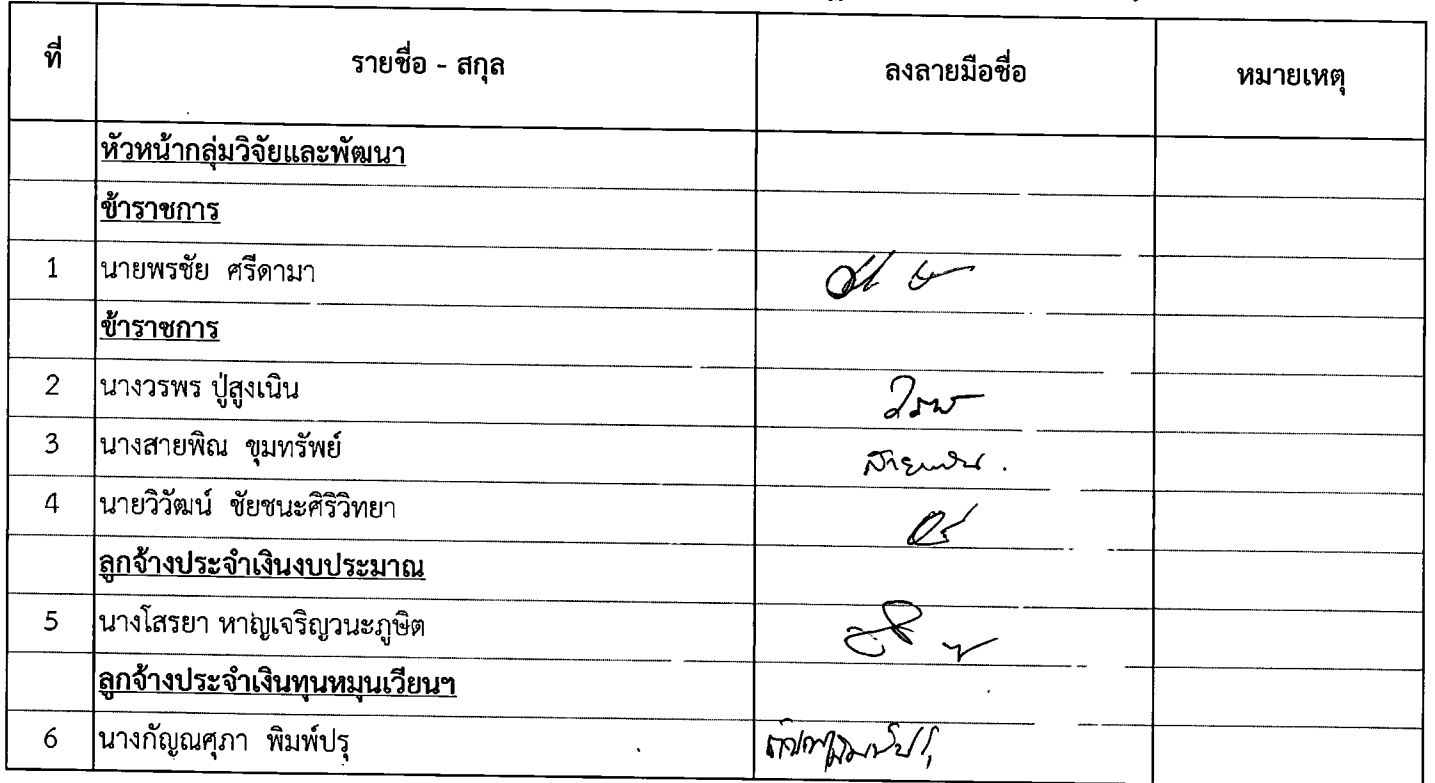 ที่ รายชื่อ - สกุล ลงลายมือชื่อ หมายเหตุ
หัวหน้ากลุ่มวิจัยและพัฒนา
ข้าราชการ
1 นายพรชัย ศรีดามา
ข้าราชการ
2 นางวรพร ปู่สูงเนิน วรพร
3 นางสายพิณ ขุมทรัพย์ สายพิณ
4 นายวิวัฒน์ ชัยชนะศิริวิทยา
ลูกจ้างประจำเงินงบประมาณ
5 นางโสรยา หาญเจริญวนะภูษิต
ลูกจ้างประจำเงินทุนหมุนเวียนฯ
6 นางกัญณศุภา พิมพ์ปรุ